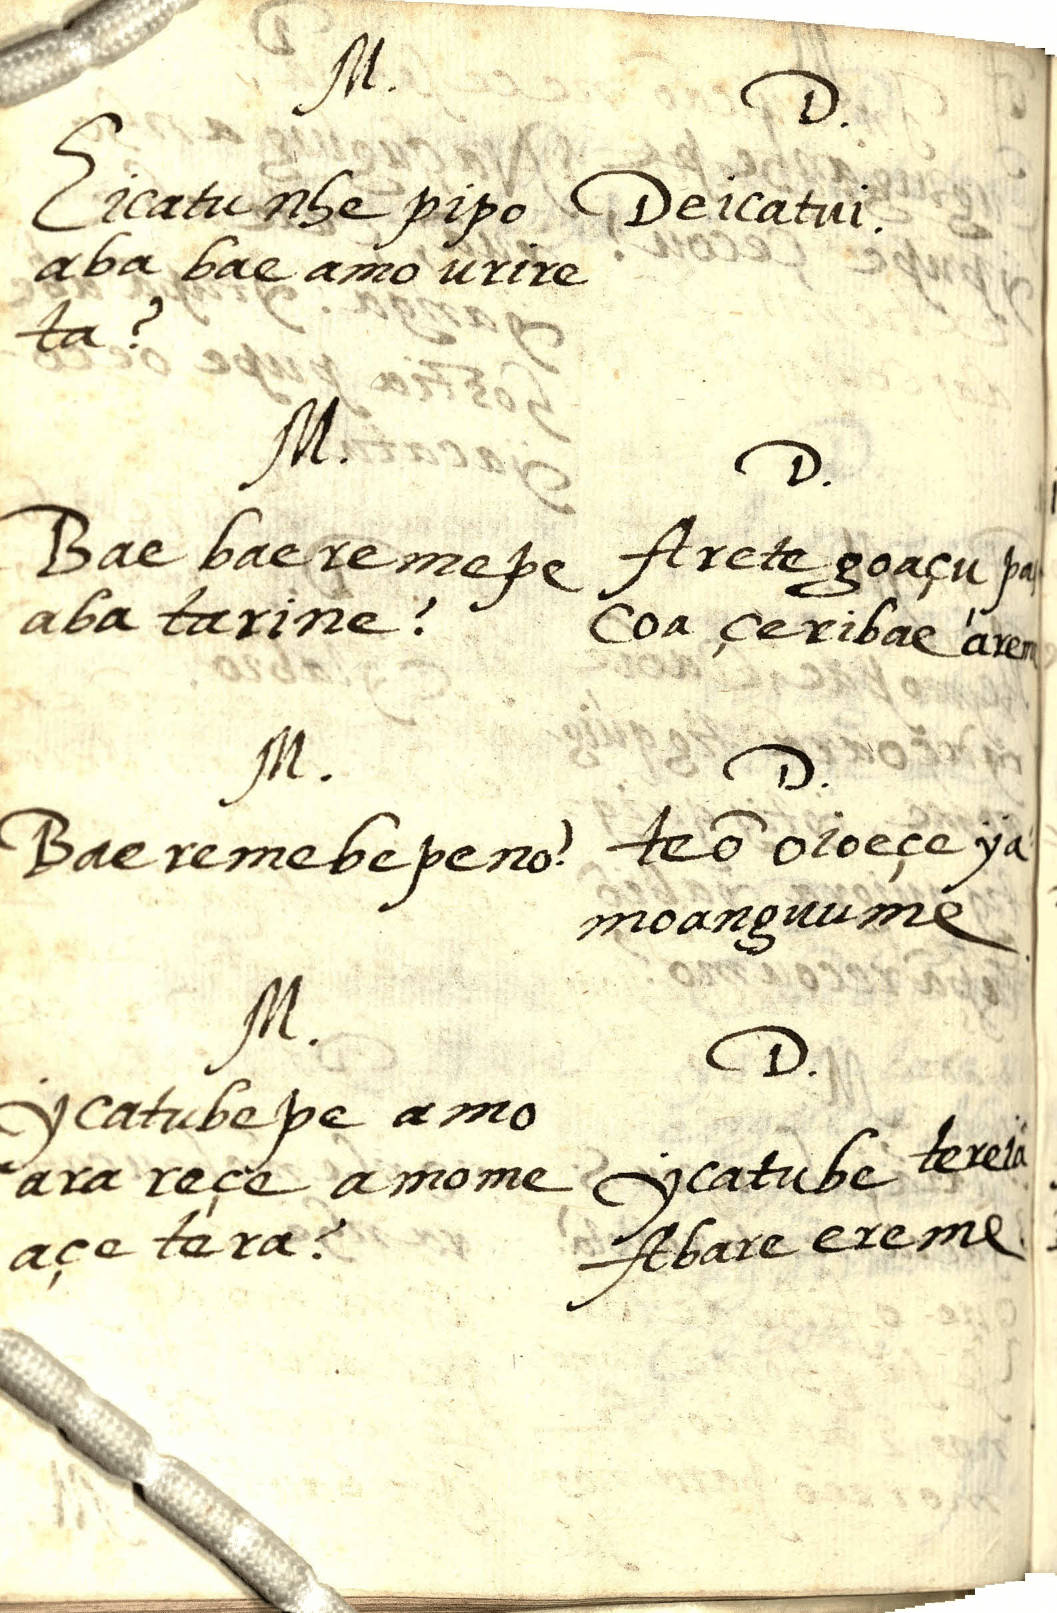 M.
Eicatu nhe pipo
aba bae amo urire
ta?
D.
Deicatui.
M.
Bae bae remepe
aba tarine?
D.
Arete goaçu pa
Coa çeribae árem
M.
Bae remebe peno?
D.
teõ oioeçe ÿa
moanguume
M.
ÿcatubepe amo
ara reçe amome
açe tera?
D.
ÿcatube tereia
Abare ereme